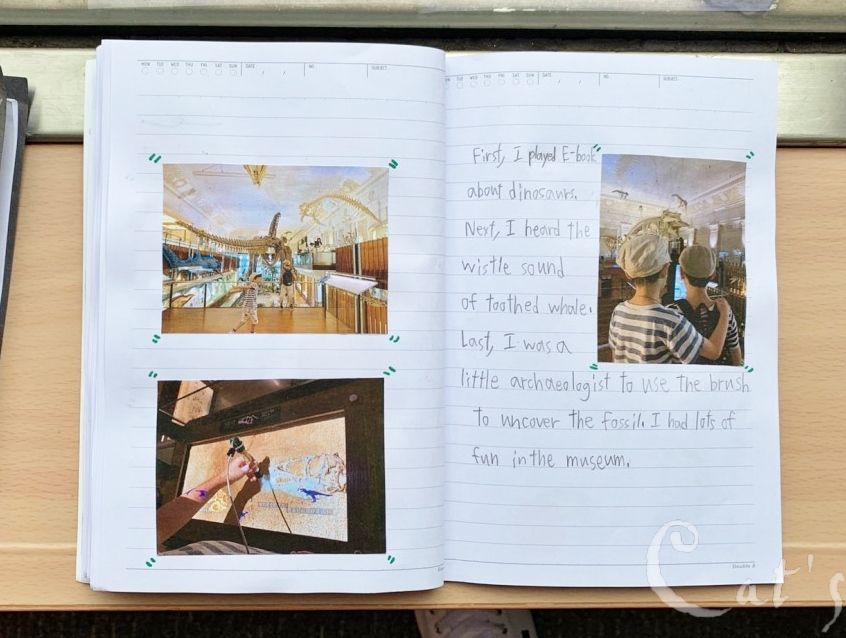 MON TUE WED THU FRI SAT SUN DATE NO. SUBJECT
TUE WED THU FRI SAT SUN DATE NO. SUBJECT
First, I played E-book
about dinosaurs.
Next, I heard the
wistle sound
of toothed whale.
Last, I was a
little archaeologist to use the brush
to uncover the fossil. I had lots of
fun in the museum.
Double A
Cat's